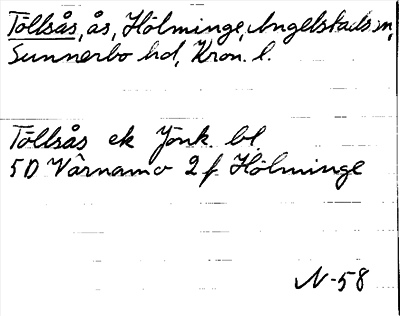 Töllsås, ås, Hölminge, Angelstads sn,
Sunnerbo hd, Kron. l.
Töllsås ek Jönk. bl.
5D Värnamo 2 f Hölminge
N-58